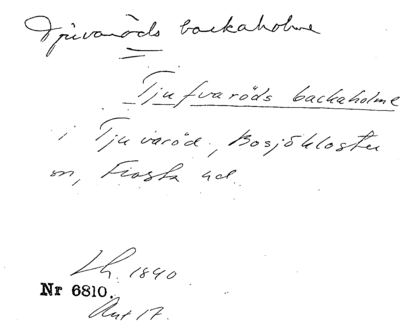 Tjuvaröds backaholme
Tjufvaröds backaholme
i Tjuvaröd, Bosjökloster
sn, Frosta hd.
Lh. 1840
Nr 6810.
Akt 17.